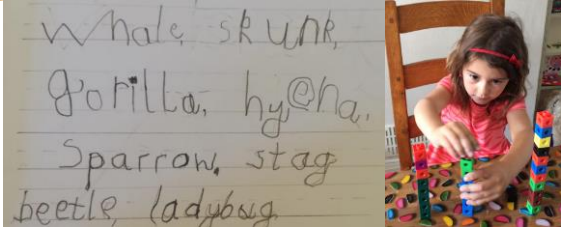 Whale, skunk,
gorilla, hyena,
Sparrow, stag
beetle, ladybug